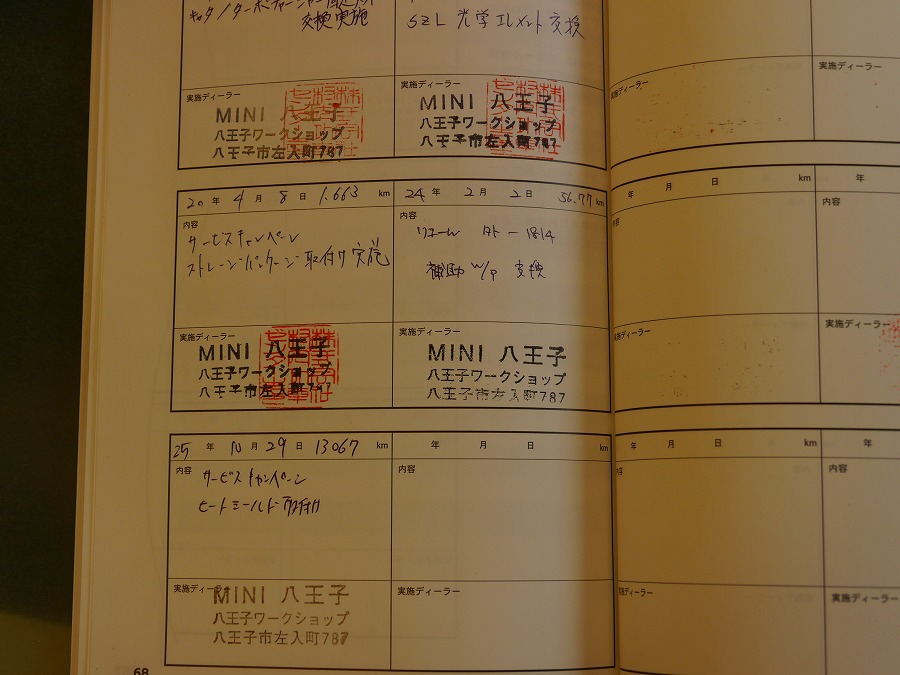 交換実施
SZL 光学エレメント 交換
実施ディーラー
MINI 八王子
八王子ワークショップ
八王子市左入町787
実施ディーラー
MINI 八王子
八王子ワークショップ
八王子市左入町787
20 年 4 月 8 日 1.663 km
内容
サービスキャンペーン
ストレージパッケージ取付け実施
実施ディーラー
MINI 八王子
八王子ワークショップ
八王子市左入町787
24 年 2 月 2 日 km
内容
リコール
補助 W/P 交換
実施ディーラー
MINI 八王子
八王子ワークショップ
八王子市左入町787
25 年 10 月 29 日 13067 km
内容
サービスキャンペーン
ヒートシールド取付け
実施ディーラー
MINI 八王子
八王子ワークショップ
八王子市左入町787
年 月 日 km
内容
実施ディーラー
実施ディーラー
実施ディーラー
年 月 日 km
年
内容
実施ディーラー
実施ディーラー
年 月 日 km
年
内容
実施ディーラー
実施ディーラー
68